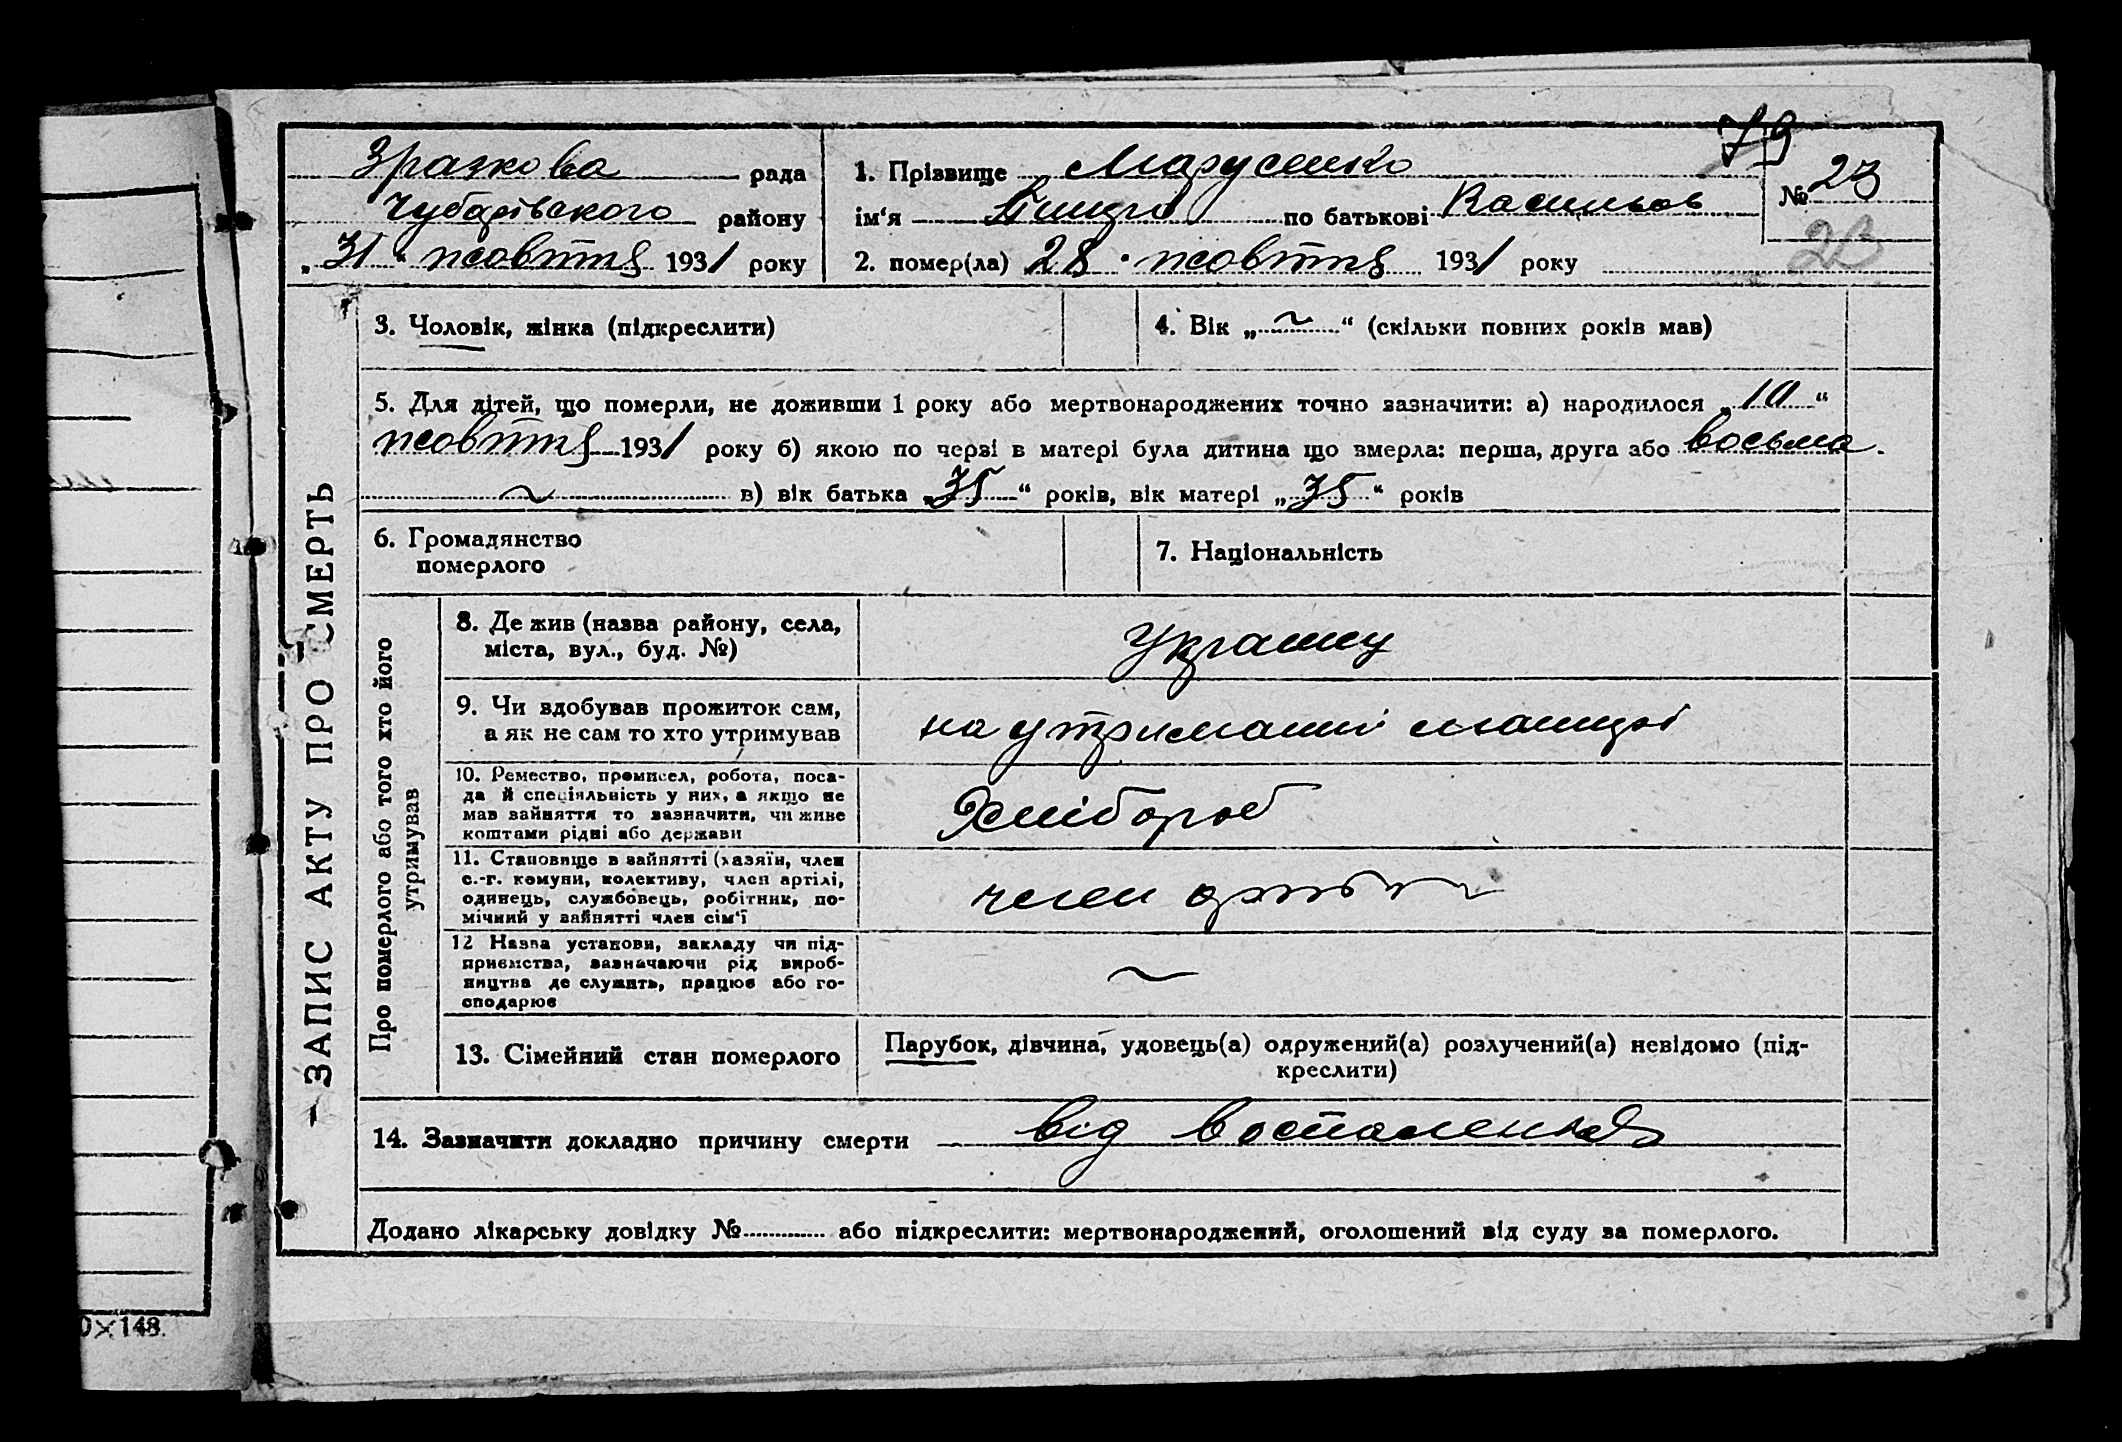 79
Зразкова рада
Чубарівського району
„31“ жовтня 1931 року
1. Прізвище Марусенко
№ 23
ім‘я по батькові Васильов
23
2. помер(ла) 28 жовтня 1931 року
ЗАПИС АКТУ ПРО СМЕРТЬ
3. Чоловік, жінка (підкреслити)
4. Вік „ ~ “ (скільки повних років мав)
5. Для дітей, що померли, не доживши 1 року або мертвонароджених точно зазначити: а) народилося „10“
жовтня 1931 року б) якою по черзі в матері була дитина що вмерла: перша, друга або восьма
~ в) вік батька „35“ років, вік матері „35“ років
6. Громадянство
померлого
7. Національність
Про померлого або того хто його
утримував
8. Де жив (назва району, села,
міста, вул., буд. №)
9. Чи вдобував прожиток сам,
а як не сам то хто утримував
на утриманні
10. Ремество, промисел, робота, поса-
да й специяльність у них, а якщо не
мав зайняття то зазначити, чи живе
коштами рідні або держави
Хлібороб
11. Становище в зайнятті (хазяїн, член
с.-г. комуни, колективу, член артілі,
одинець, службовець, робітник, по-
мічний у зайнятті член сім‘ї
член артілі
12 Назва установи, закладу чи під-
приємства, зазначаючи рід вироб-
ництва де служить, працює або го-
сподарює
~
13. Сімейний стан померлого
Парубок, дівчина, удовець(а) одружений(а) розлучений(а) невідомо (під-
креслити)
14. Зазначити докладно причину смерти від воспаления
Додано лікарську довідку № або підкреслити: мертвонароджений, оголошений від суду за померлого.
0×148.